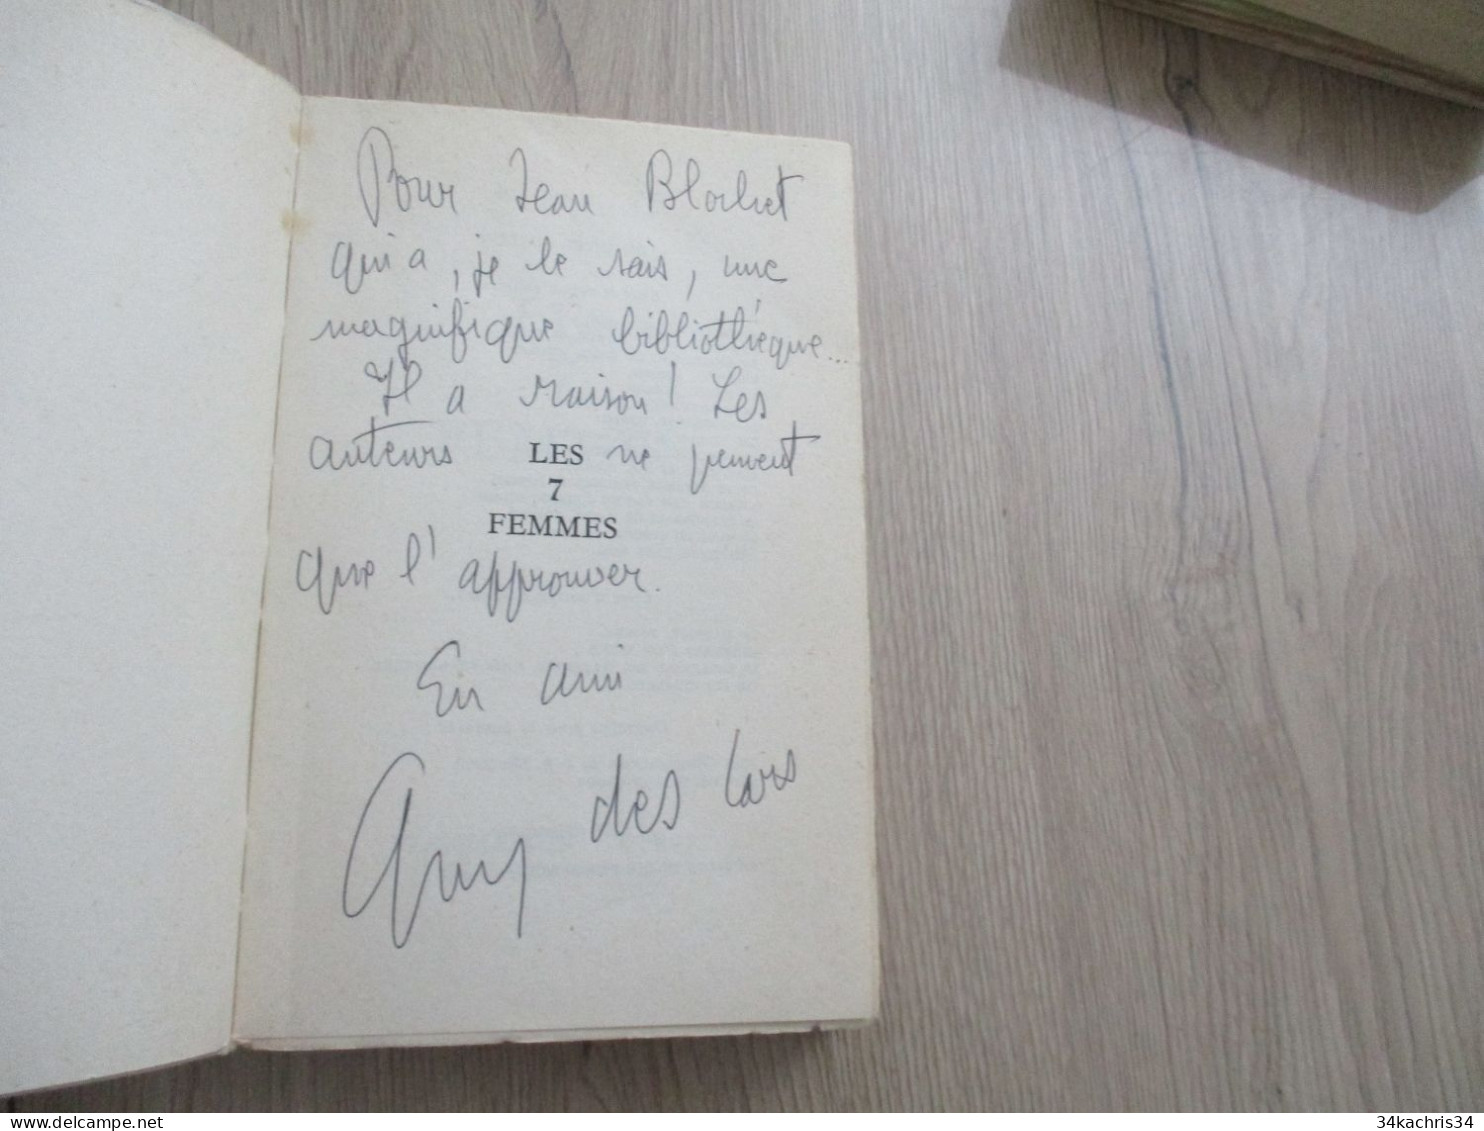 Pour Jean Blochet
qui a, je le sais, une
magnifique bibliothèque...
Il a raison! Les
auteurs ne peuvent
LES
7
FEMMES
que l'approuver.
En ami
Guy des Cars
delcampe.net
34kachris34